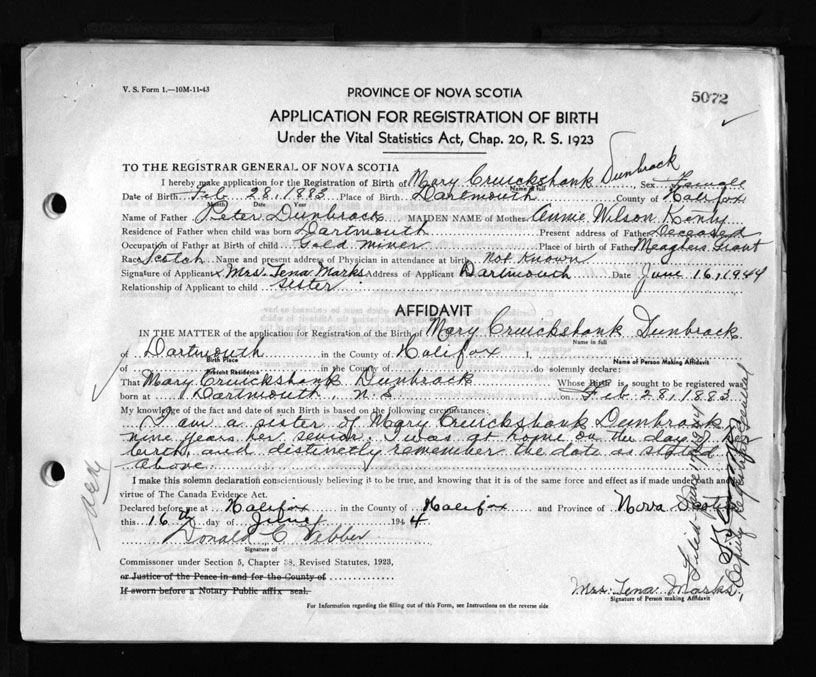 V. S. Form 1.—10M-11-43
PROVINCE OF NOVA SCOTIA
5072
APPLICATION FOR REGISTRATION OF BIRTH
Under the Vital Statistics Act, Chap. 20, R. S. 1923
TO THE REGISTRAR GENERAL OF NOVA SCOTIA
I hereby make application for the Registration of Birth of Mary Cruickshank Dunbrack Sex Female
Name in full
Date of Birth Feb 28, 1883 Place of Birth Dartmouth County of Halifax
Month Day Year
Name of Father Peter Dunbrack MAIDEN NAME of Mother Annie Wilson Kenny
Residence of Father when child was born Dartmouth Present address of Father Deceased
Occupation of Father at Birth of child Gold miner Place of birth of Father Meaghers Grant
Race Scotch Name and present address of Physician in attendance at birth Not Known
Signature of Applicant x Mrs. Tena Marks Address of Applicant Dartmouth Date June 16, 1944
Relationship of Applicant to child sister
AFFIDAVIT
IN THE MATTER of the application for Registration of the Birth of Mary Cruickshank Dunbrack
Name in full
of Dartmouth in the County of Halifax I,
Birth Place
Name of Person Making Affidavit
of in the County of do solemnly declare:
Present Residence
That Mary Cruickshank Dunbrack Whose Birth is sought to be registered was
born at Dartmouth, N.S. on Feb 28, 1883
My knowledge of the fact and date of such Birth is based on the following circumstances:
I am a sister of Mary Cruickshank Dunbrack
nine years her senior. I was at home on the day of her
birth, and distinctly remember the date as stated
above.
I make this solemn declaration conscientiously believing it to be true, and knowing that it is of the same force and effect as if made under oath and
virtue of The Canada Evidence Act.
Declared before me at Halifax in the County of Halifax and Province of Nova Scotia
this 16th day of June 1944
Donald C Webber
Signature of
Commissoner under Section 5, Chapter 38, Revised Statutes, 1923,
or Justice of the Peace in and for the County of
If sworn before a Notary Public affix seal.
Mrs. Tena Marks
Signature of Person making Affidavit
For Information regarding the filling out of this Form, see Instructions on the reverse side
Filed June 17, 1944
Deputy Registrar General